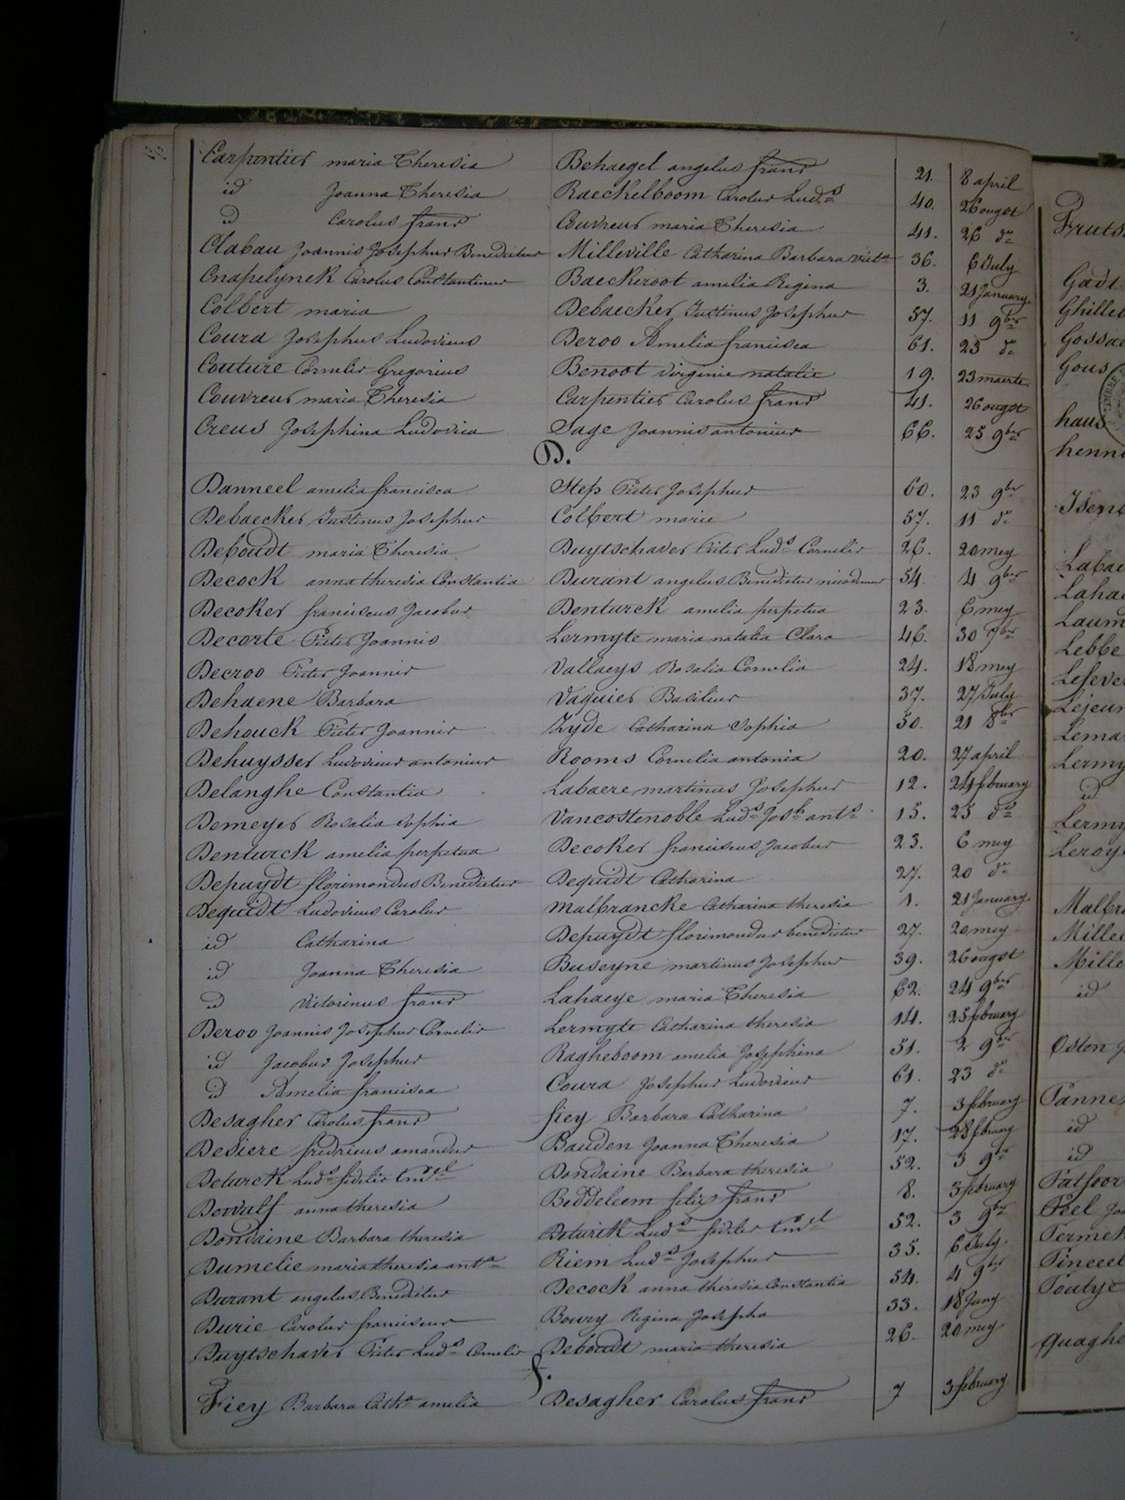 Carpentier maria Theresia Behaegel angelus frans 21. 8 april
id Joanna Theresia Raeckelboom Carolus Lud.s 40. 26 ougst
id Carolus frans Couvreur maria Theresia 41. 26 do
Clabau Joannis Josephus Benedictus Milleville Catharina Barbara vict.a 36. 6 July
Cnapelynck Carolus Constantinus Baeckeroot amelia Regina 3. 21 January
Colbert maria Debaecker Justinus Josephus 57. 11 9ber
Coura Josephus Ludovicus Deroo Amelia francisca 61. 23 do
Couture Cornelis Gregorius Benoot virginie natalie 19. 23 maerte
Couvreur maria Theresia Carpentier Carolus frans 41. 26 ougst
Creus Josephina Ludovica Sage Joannis antonius 66. 25 9ber
D.
Danneel amelia francisca Step Pieter Josephus 60. 23 9ber
Debaecker Justinus Josephus Colbert marie 57. 11 do
Deboudt maria Theresia Duytschaver Pieter Lud.s Cornelis 26. 20 mey
Decock anna theresia Constantia Durant angelus Benedictus nicodemus 54. 4 9ber
Decoker franciscus Jacobus Denturck amelia perpetua 23. 6 mey
Decorte Pieter Joannis Lermyte maria natalia Clara 46. 30 7ber
Decroo Pieter Joannis Vallaeys Rosalia Cornelia 24. 18 mey
Dehaene Barbara Vaquier Basilius 37. 27 July
Dehouck Pieter Joannis Zyde Catharina Sophia 50. 21 8ber
Dehuysser Ludovicus antonius Rooms Cornelia antonia 20. 27 april
Delanghe Constantia Labaere martinus Josephus 12. 24 february
Demeyer Rosalia Sophia Vancostenoble Lud.s Jos.h ant.s 15. 25 do
Denturck amelia perpetua Decoker franciscus Jacobus 23. 6 mey
Depuydt florimondus Benedictus Dequidt Catharina 27. 20 do
Dequidt Ludovicus Carolus Malbrancke Catharina theresia 1. 21 January
id Catharina Depuydt florimondus benedictus 27. 20 mey
id Joanna Theresia Buseyne martinus Josephus 39. 26 ougst
id Victorinus frans Lahaeye maria Theresia 62. 24 9ber
Deroo Joannis Josephus Cornelis Lermyte Catharina theresia 14. 25 february
id Jacobus Josephus Ragheboom amelia Josephina 51. 2 9ber
id Amelia francisca Coura Josephus Ludovicus 61. 23 do
Desagher Carolus frans fiey Barbara Catharina 7. 3 february
Desiere fredricus amandus Bauden Joanna Theresia 17. 28 february
Deturck Lud.s fidelis Em.el Dondaine Barbara theresia 52. 3 9br
Dewulf anna theresia Beddeleem felix frans 8. 3 february
Dondaine Barbara theresia Deturck Lud.s fidelis Em.el 52. 3 9br
Dumelie maria theresia ant.a Riem Lud.s Josephus 35. 6 July
Durant angelus Benedictus Decock anna theresia Constantia 54. 4 9ber
Durie Carolus franciscus Boury Regina Josepha 33. 18 Juny
Duytschaver Pieter Lud.s Cornelis Deboudt maria theresia 26. 20 mey
f.
Fiey Barbara Cath.a amelia Desagher Carolus frans 7 3 february